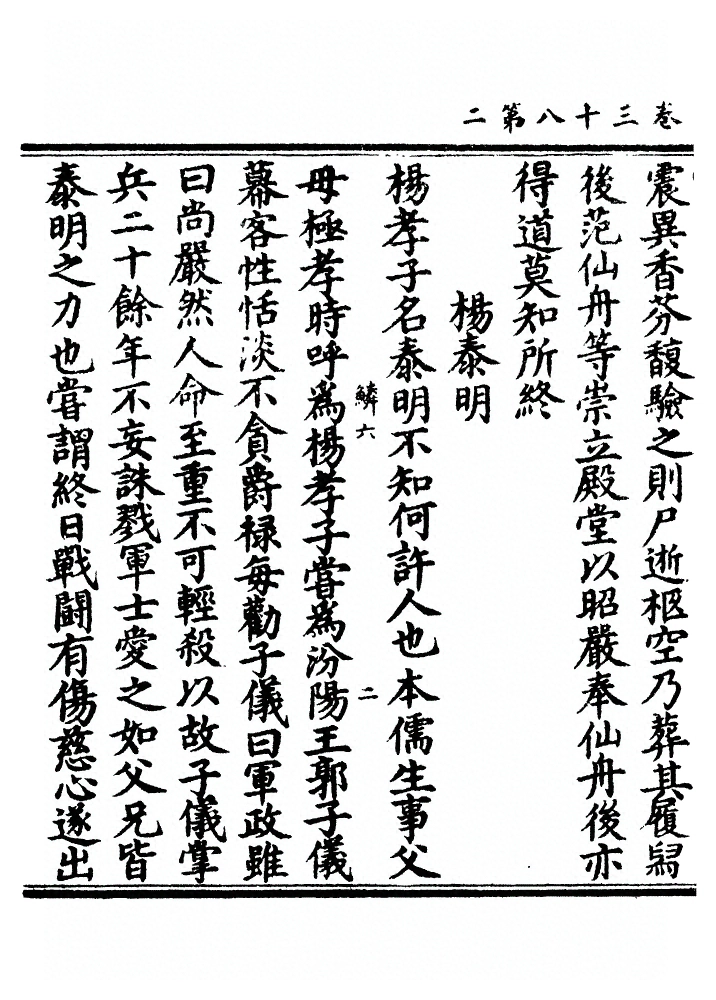 卷三十八第二
震異香芬馥驗之則尸逝柩空乃葬其履舄
後范仙舟等崇立殿堂以昭嚴奉仙舟後亦
得道莫知所終
楊泰明
楊孝子名泰明不知何許人也本儒生事父
鱗六
二
母極孝時呼爲楊孝子嘗爲汾陽王郭子儀
幕客性恬淡不貪爵祿每勸子儀曰軍政雖
曰尚嚴然人命至重不可輕殺以故子儀掌
兵二十餘年不妄誅戮軍士愛之如父兄皆
泰明之力也嘗謂終日戰鬪有傷慈心遂出